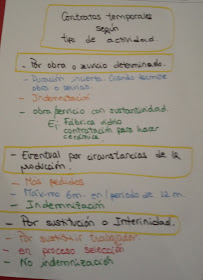 Contratos temporales
según
tipo de actividad.
- Por obra o servicio determinado.
- Duración incierta. Cuando termine
obra o servicio.
- Indemnización
- obra/servicio con sustantividad.
Ej: Fábrica vidrio
contratación para hacer
cerámica
- Eventual por circunstancias de la
producción.
- Más pedidos
- Máximo 6m. en/periodo de 12 m.
- Indemnización
- Por sustitución o Interinidad.
- Por sustituir trabajador.
- en proceso selección
- No indemnización